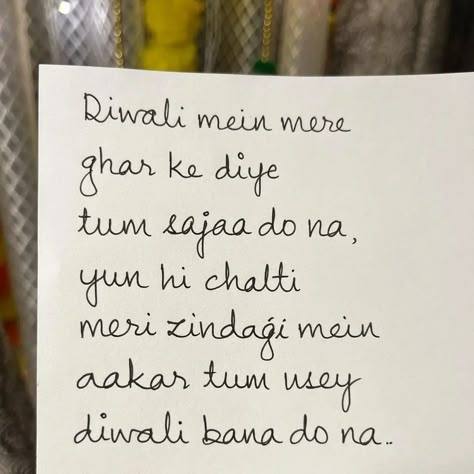 Diwali mein mere
ghar ke diye
tum sajaa do na,
yun hi chalti
meri zindagi mein
aakar tum usey
diwali bana do na..